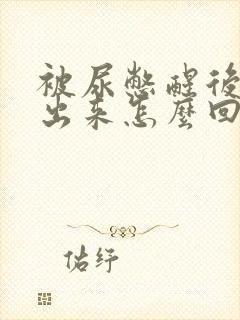 被尿憋醒後
出来怎麼回
佑纾